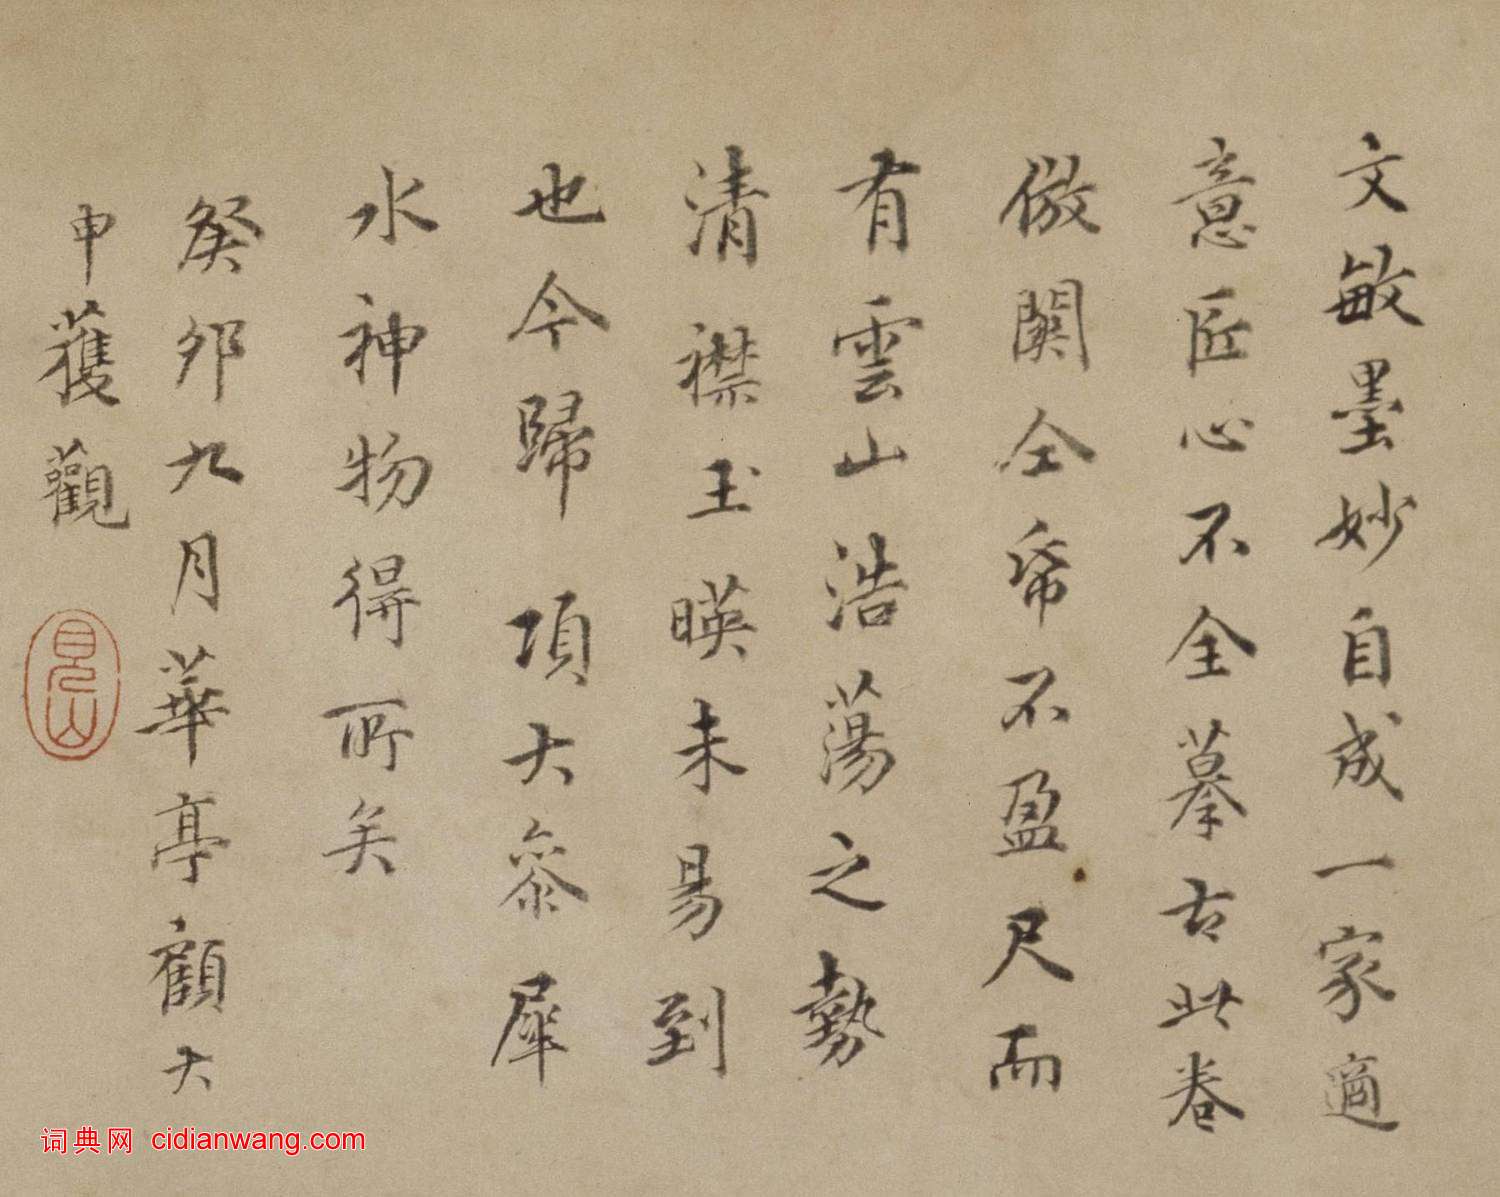 文敏墨妙自成一家適
意匠心不全摹古此卷
倣関仝帋不盈尺而
有雲山浩蕩之勢
清襟玉暎未易到
也今歸項大叅犀
水神物得所矣
癸夘九月華亭顧大
申獲觀
見山
词典网 cidianwang.com